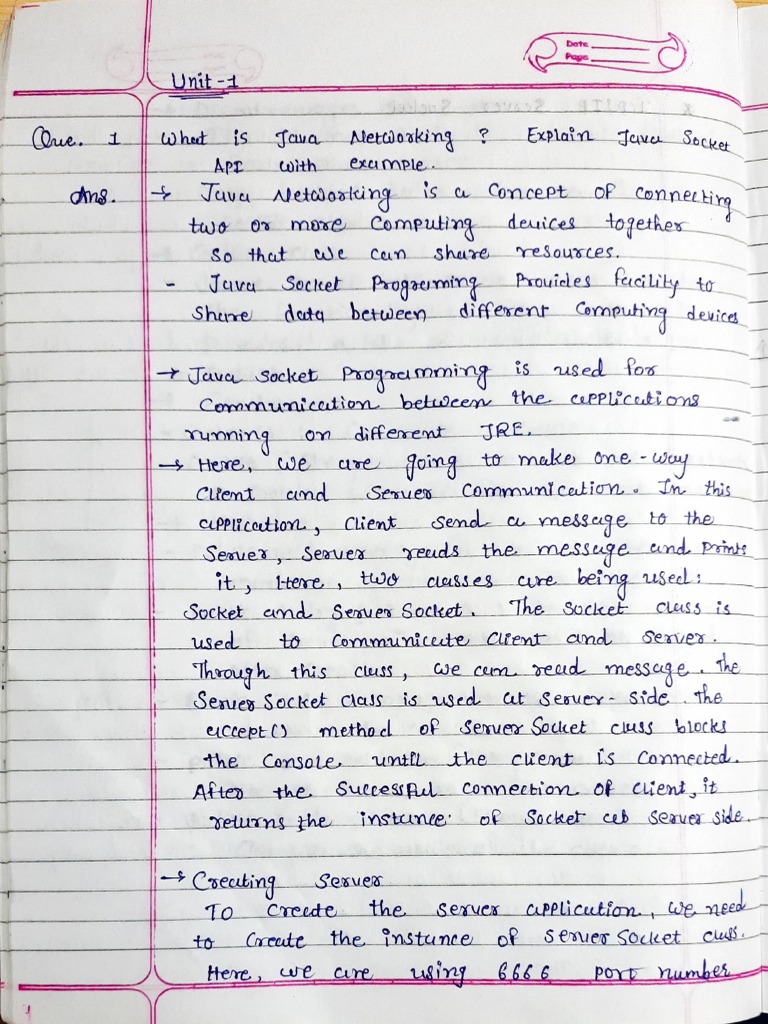 Date
Page
Unit-1
Que. 1 What is Java Networking ? Explain Java Socket
API with example.
Ans. → Java Networking is a concept of connecting
two or more computing devices together
so that we can share resources.
- Java Socket Programming Provides facility to
share data between different computing devices
→ Java socket Programming is used for
communication between the applications
running on different JRE.
→ Here, we are going to make one-way
client and server communication. In this
application, client send a message to the
server, server reads the message and prints
it, Here, two classes are being used:
Socket and Server Socket. The Socket class is
used to communicate client and server.
Through this class, we can read message. the
Server Socket class is used at server-side. the
accept() method of server Socket class blocks
the console until the client is connected.
After the successful connection of client, it
returns the instance of Socket at server side.
→ Creating Server
To create the server application, we need
to create the instance of server Socket class.
Here, we are using 6666 port number
1